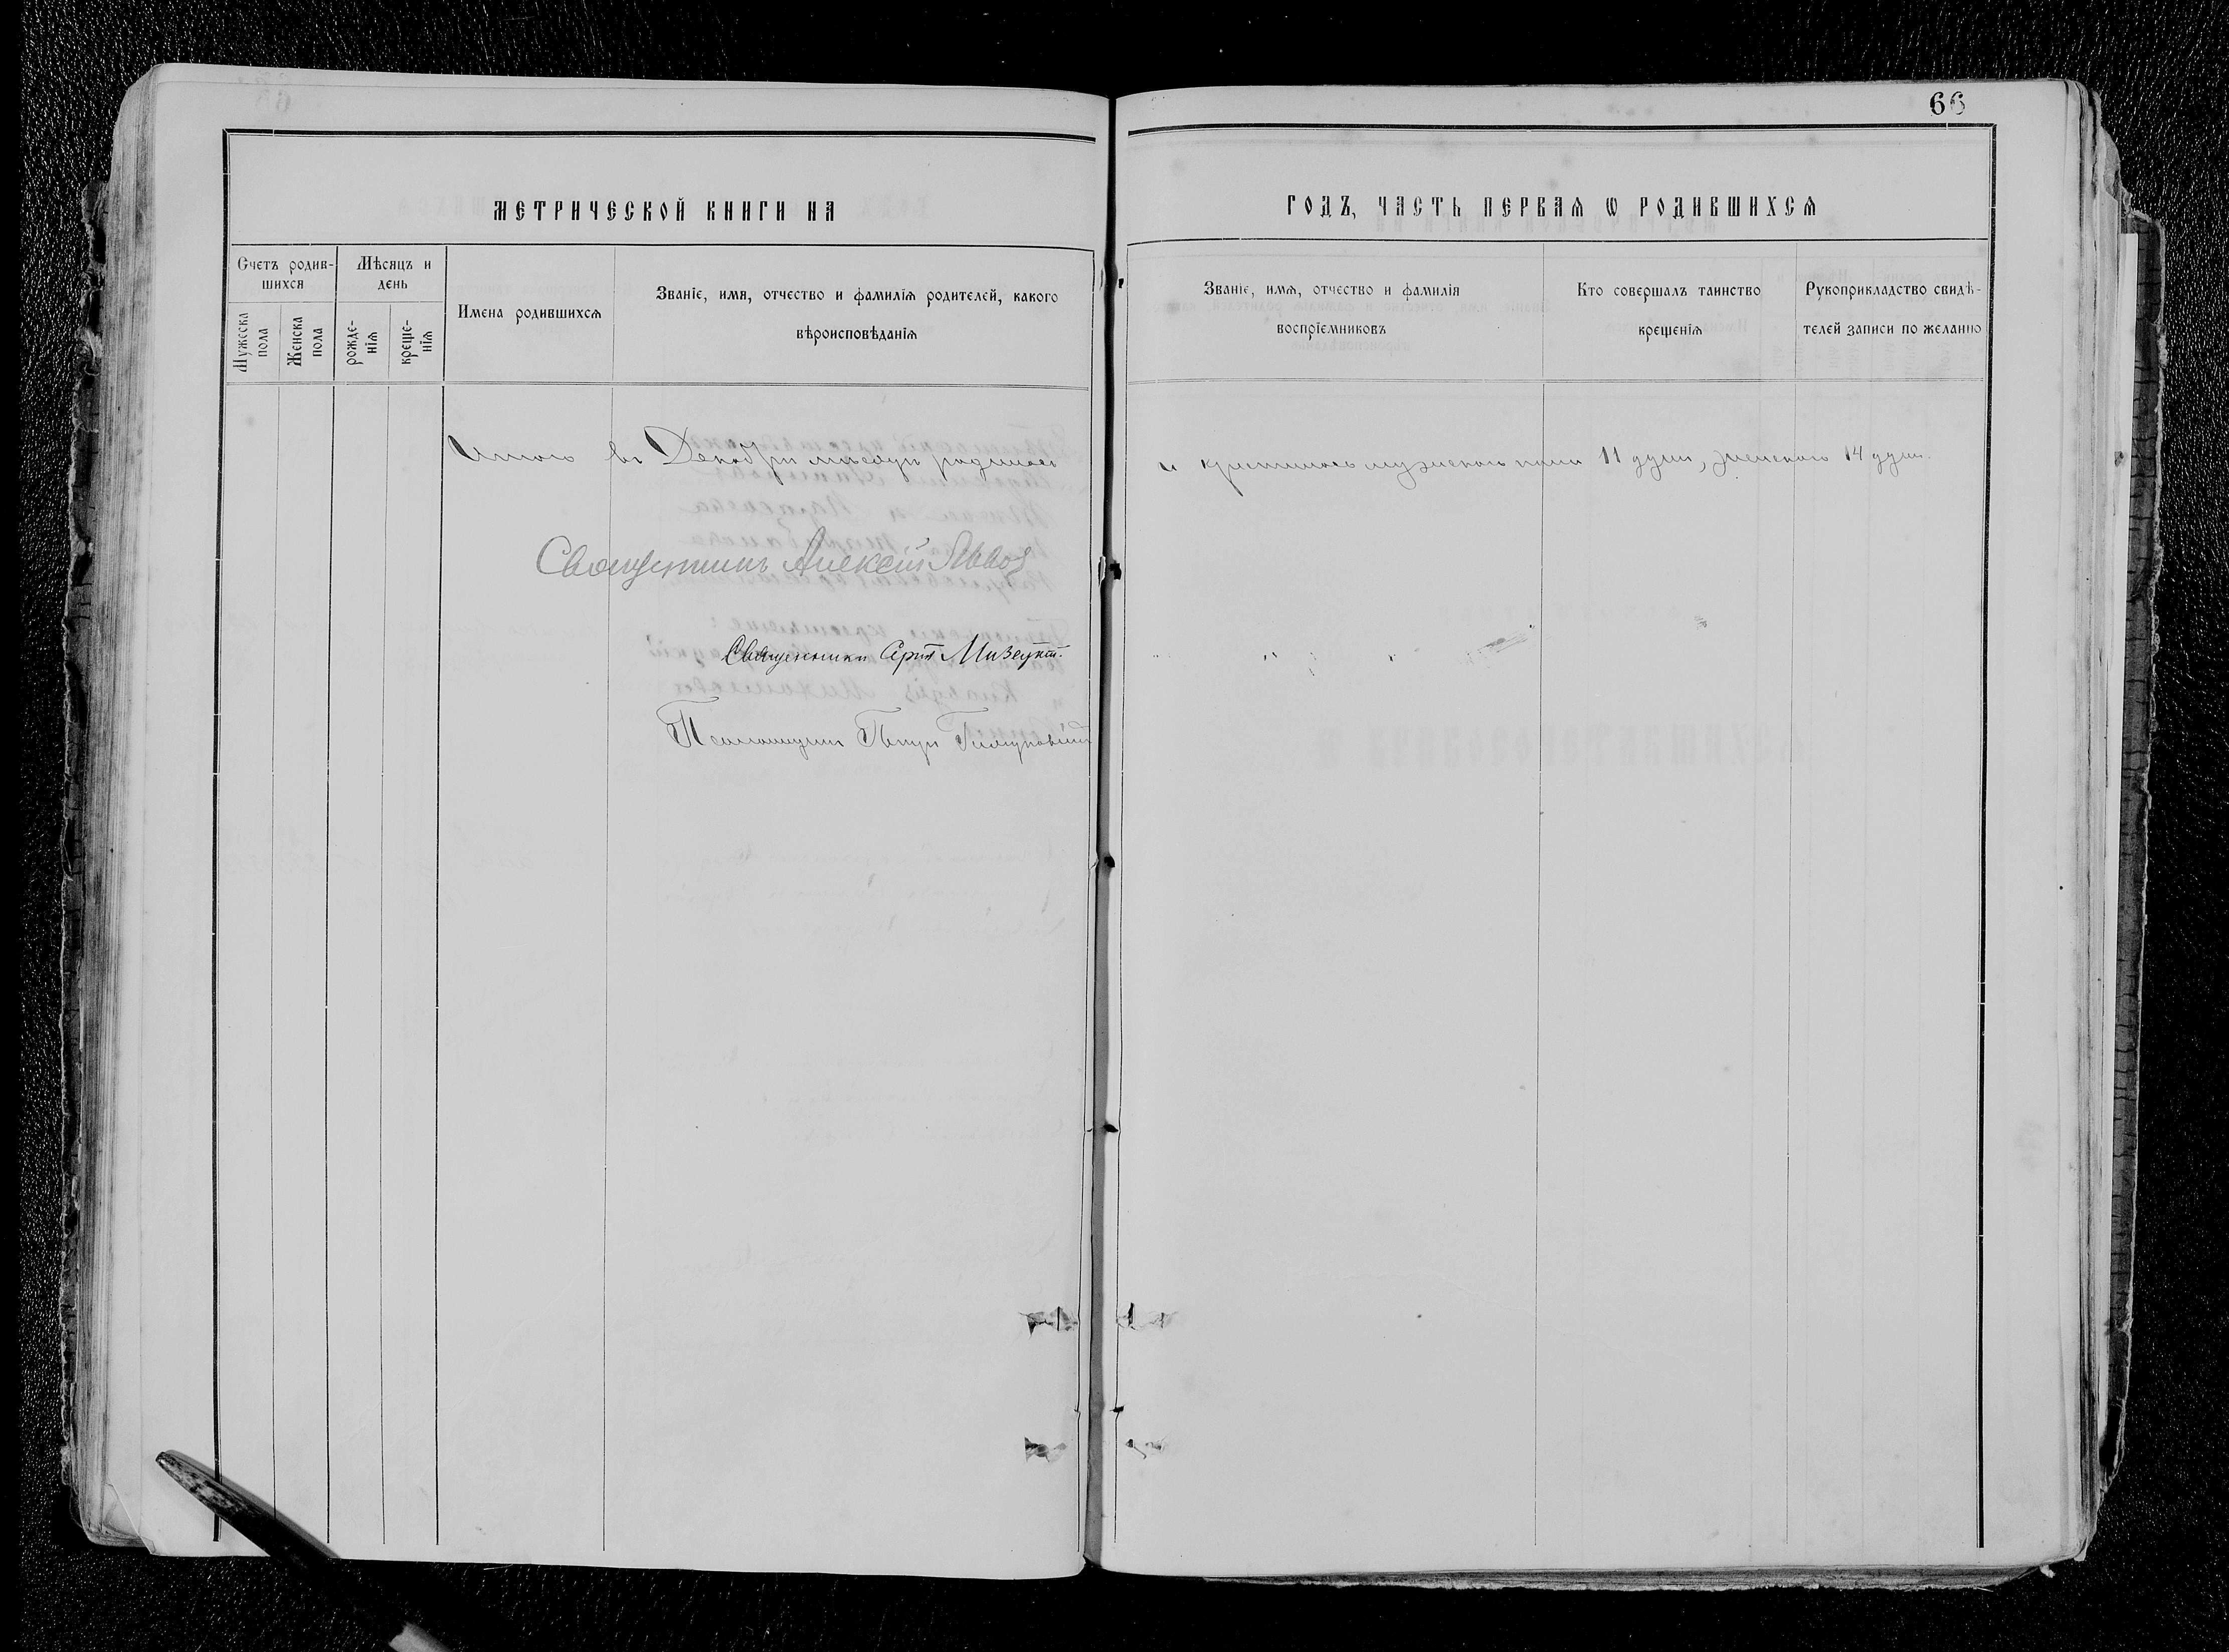 66
МЕТРИЧЕСКОЙ КНИГИ НА
ГОДЪ, ЧАСТЬ ПЕРВАЯ Ѡ РОДИВШИХСЯ
Счетъ родив-
шихся
Мѣсяцъ и
день
Мужеска
пола
Женска
пола
рожде-
нія
креще-
нія
Имена родившихся
Званіе, имя, отчество и фамилія родителей, какого
вѣроисповѣданія
Званіе, имя, отчество и фамилія
воспріемниковъ
Кто совершалъ таинство
крещенія
Рукоприкладство свидѣ-
телей записи по желанію
Итого въ Декабрѣ мѣсяцѣ родилось
и крестилось мужескаго пола 11 душъ, женскаго 14 душъ.
Священникъ Алексій
Священникъ
Псаломщикъ Петръ